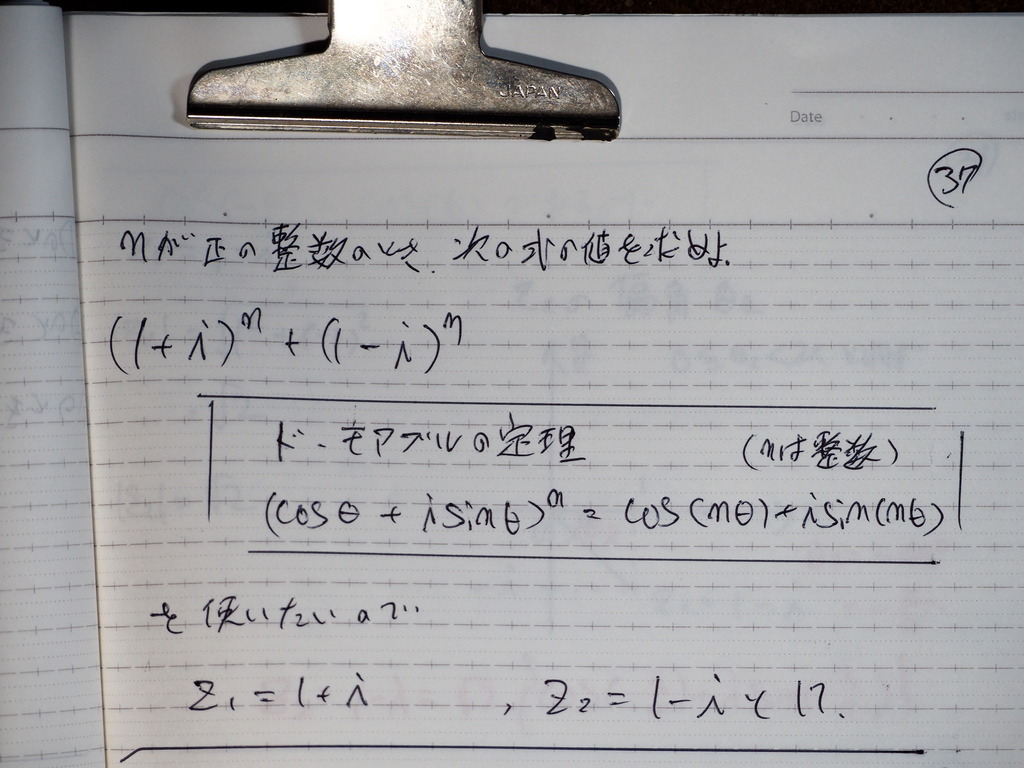 JAPAN
Date
37
nが正の整数のとき、次の式の値を求めよ。
(1+i)^n + (1-i)^n
ド・モアブルの定理 (nは整数)
(cosθ + i sinθ)^n = cos(nθ)+i sin(nθ)
を使いたいので
Z₁ = 1+i , Z₂ = 1-i と